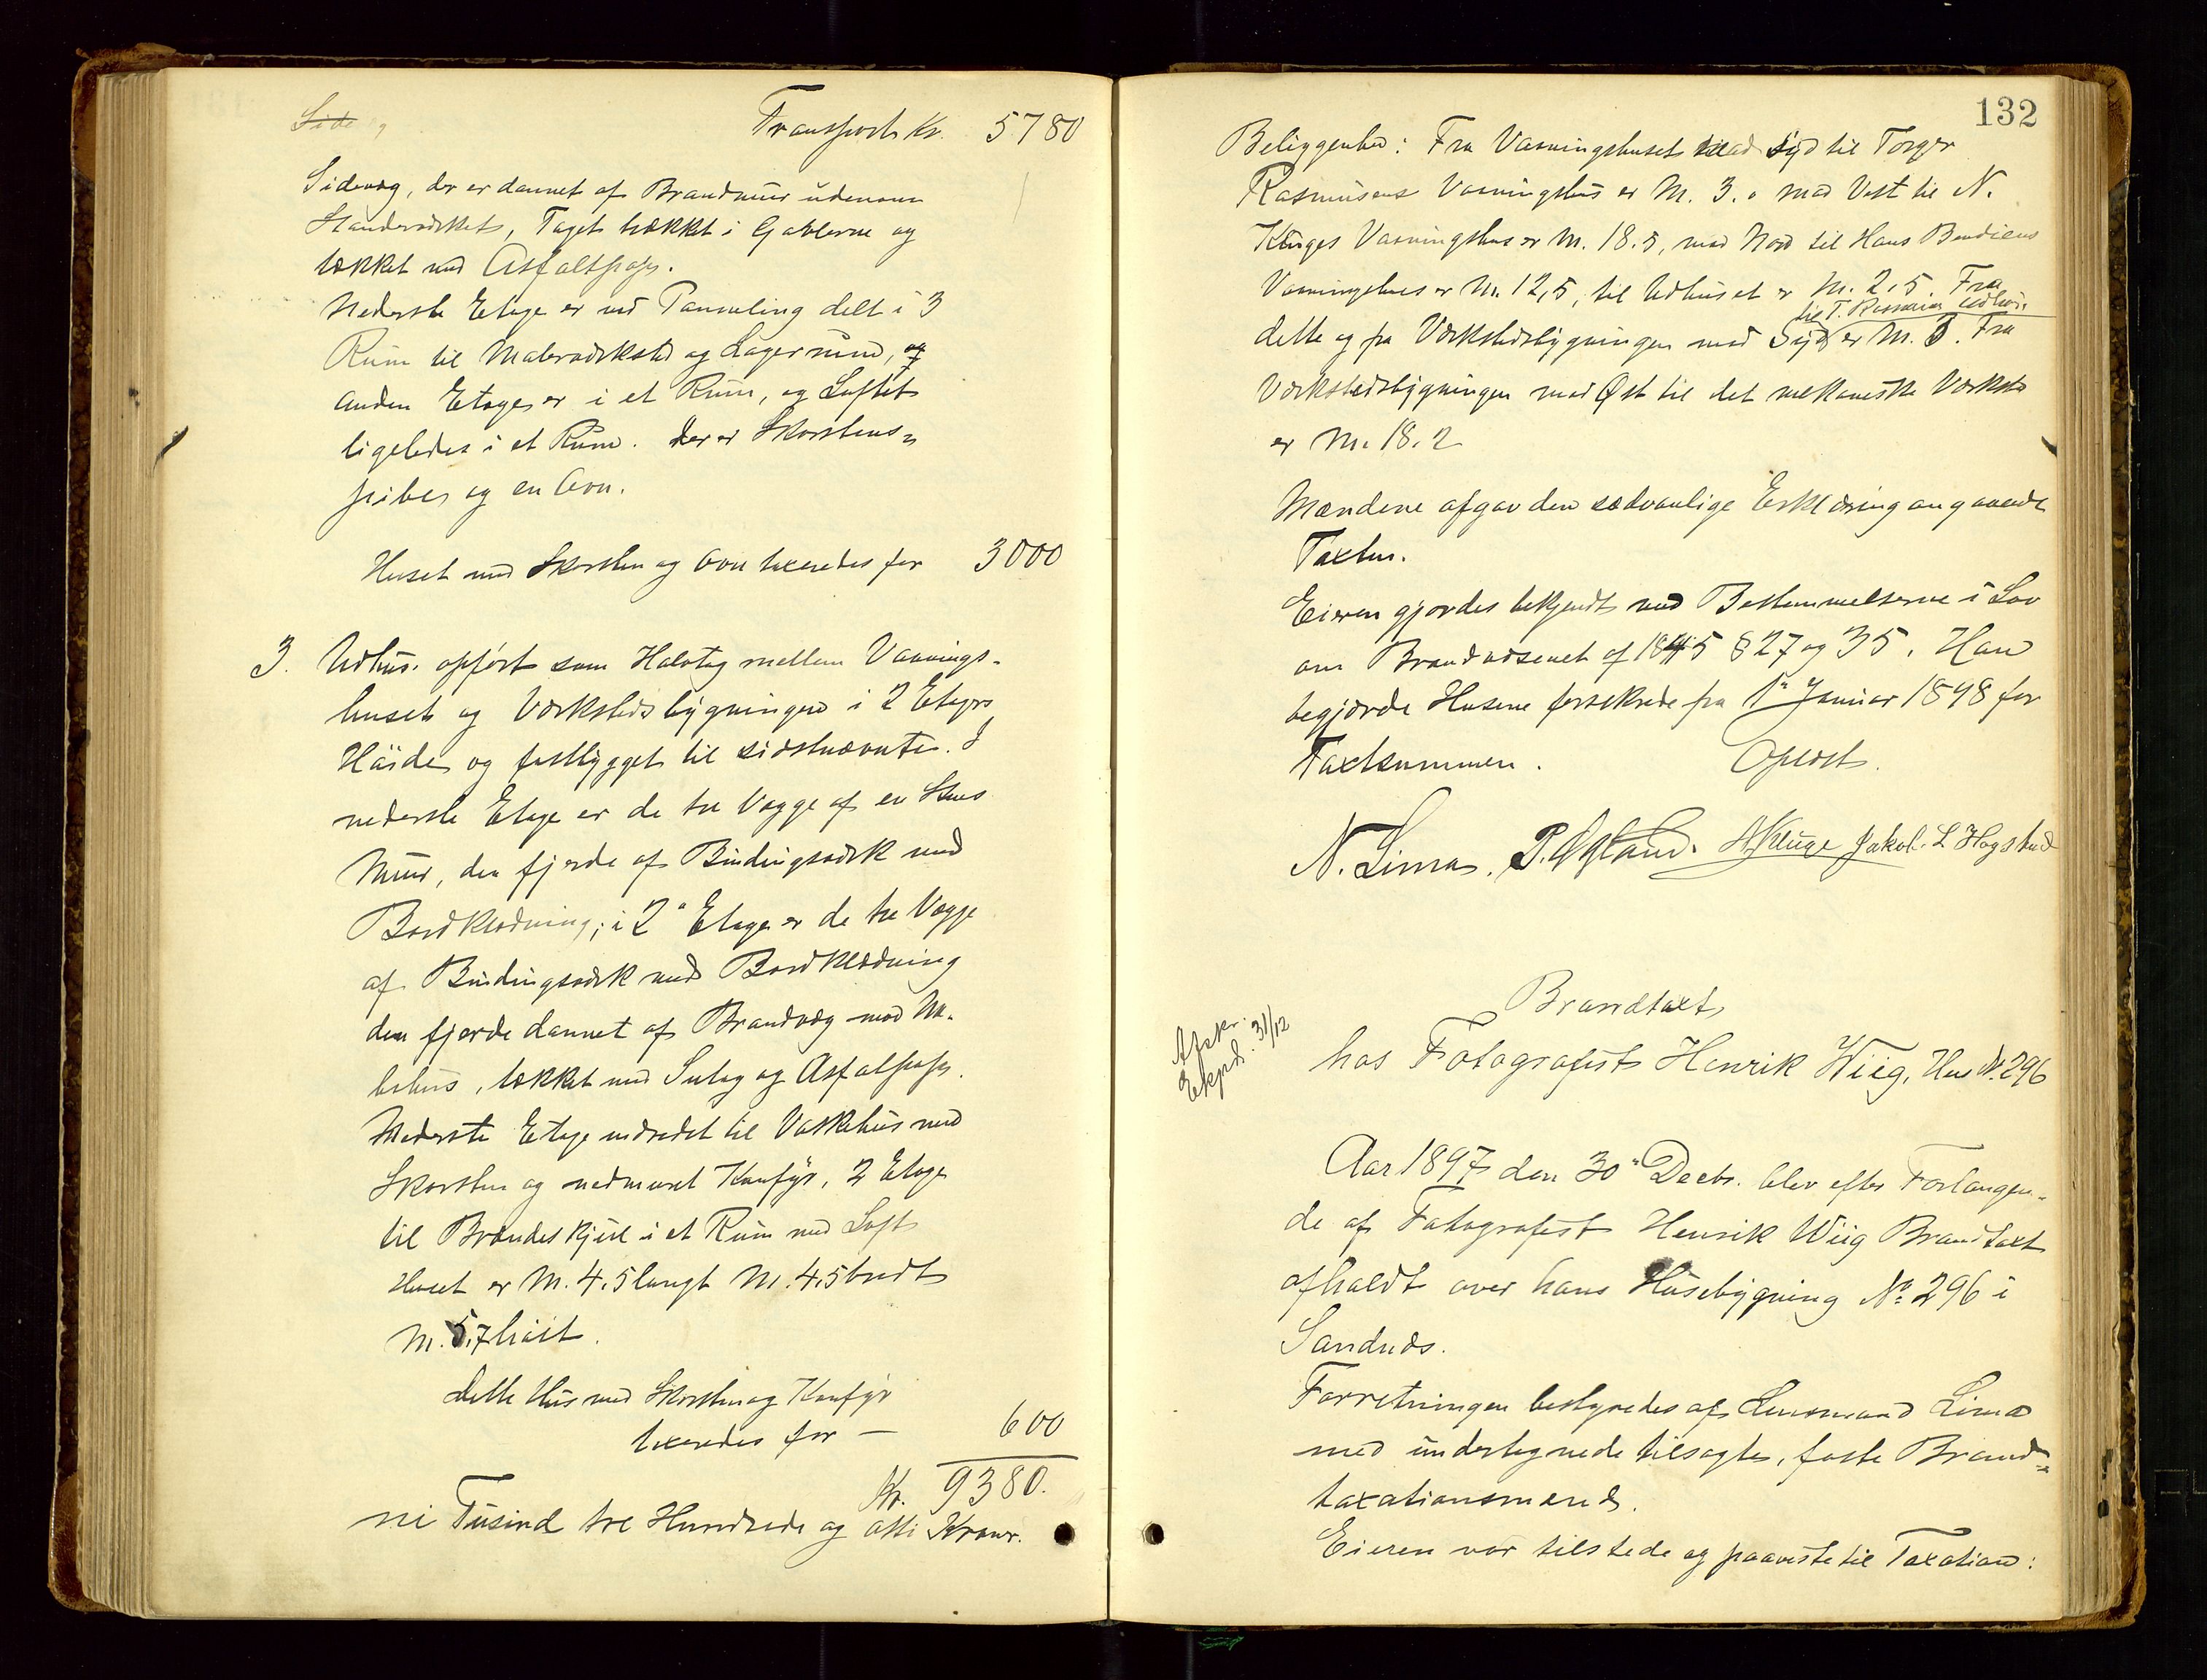 Side
Transport Kr. 5780
Sidevæg, der er dannet af Brandmur udenom
Standerværket, Taget trækket i Gavlerne og
tækket med Asfaltpap.
Nederste Etage er ved Panneling delt i 3
Rum til Malerværksted og Lagerrum, og
Anden Etage er i et Rum, og Loftet
ligeledes i et Rum. Der er Skorstens-
pibe og en Ovn.
Huset med Skorsten og Ovn taxeredes for 3000
3. Udhus. opført som Halvtag mellem Vaanings-
huset og Værkstedsbygningen i 2 Etages
Høide og fastbygget til sidstnævnte. I
nederste Etage er de tre Vægge af en Stens
Mur, den fjerde af Bindingsværk med
Bordklædning; i 2" Etage er de tre Vægge
af Bindingsværk med Bordklædning
den fjerde dannet af Brandvæg mod Na-
bohus, tækket med Sutag og Asfaltpap.
Nederste Etage indredet til Vaskehus med
Skorsten og nedmuret Komfyr, 2 Etage
til Brændeskjul i et Rum med Loft
Huset er M. 4,5 langt M. 4,5 bredt
M. 5,7 høit.
Dette Hus med Skorsten og Komfyr
taxeredes for — 600
Kr. 9380.
ni Tusind tre Hundrede og otti Kroner.
132
Beliggenhed: Fra Vaaningshuset mod Syd til Torger
Rasmusens Vaaningshus er M. 3.0 mod Vest til N.
Kluges Vaaningshus er M. 18.5, mod Nord til Hans Bendicens
Vaaningshus er M. 12,5, til Udhuset er M. 2,5. Fra
til T. Rasmusens Udhus.
dette og fra Værkstedsbygningen mod Syd er M. 3. Fra
Værkstedsbygningen mod Øst til det mekaniske Værksted
er M. 18.2
Mændene afgav den sædvanlige Erklæring angaaende
Taxten.
Eieren gjordes bekjendt med Bestemmelserne i Lov
om Brandvæsenet af 1845 § 27 og 35. Han
begjærde Husene forsikrede fra 1" Januar 1898 for
Taxtsummen. Oplæst.
N. Lima. P. Øgland. A Kluge Jakob L Hogstad
Brandtaxt
Afskr.
Expd. 31/12
hos Fotografist Henrik Wiig, Hus N. 296
Aar 1897 den 30" Decbr. blev efter Forlangen-
de af Fotografist Henrik Wiig Brandtaxt
afholdt over hans Husebygning No 296 i
Sandnæs.
Forretningen bestyredes af Lensmand Lima
med undertegnede tilsagte, faste Brand-
taxationsmænd.
Eieren var tilstede og paaviste til Taxation: